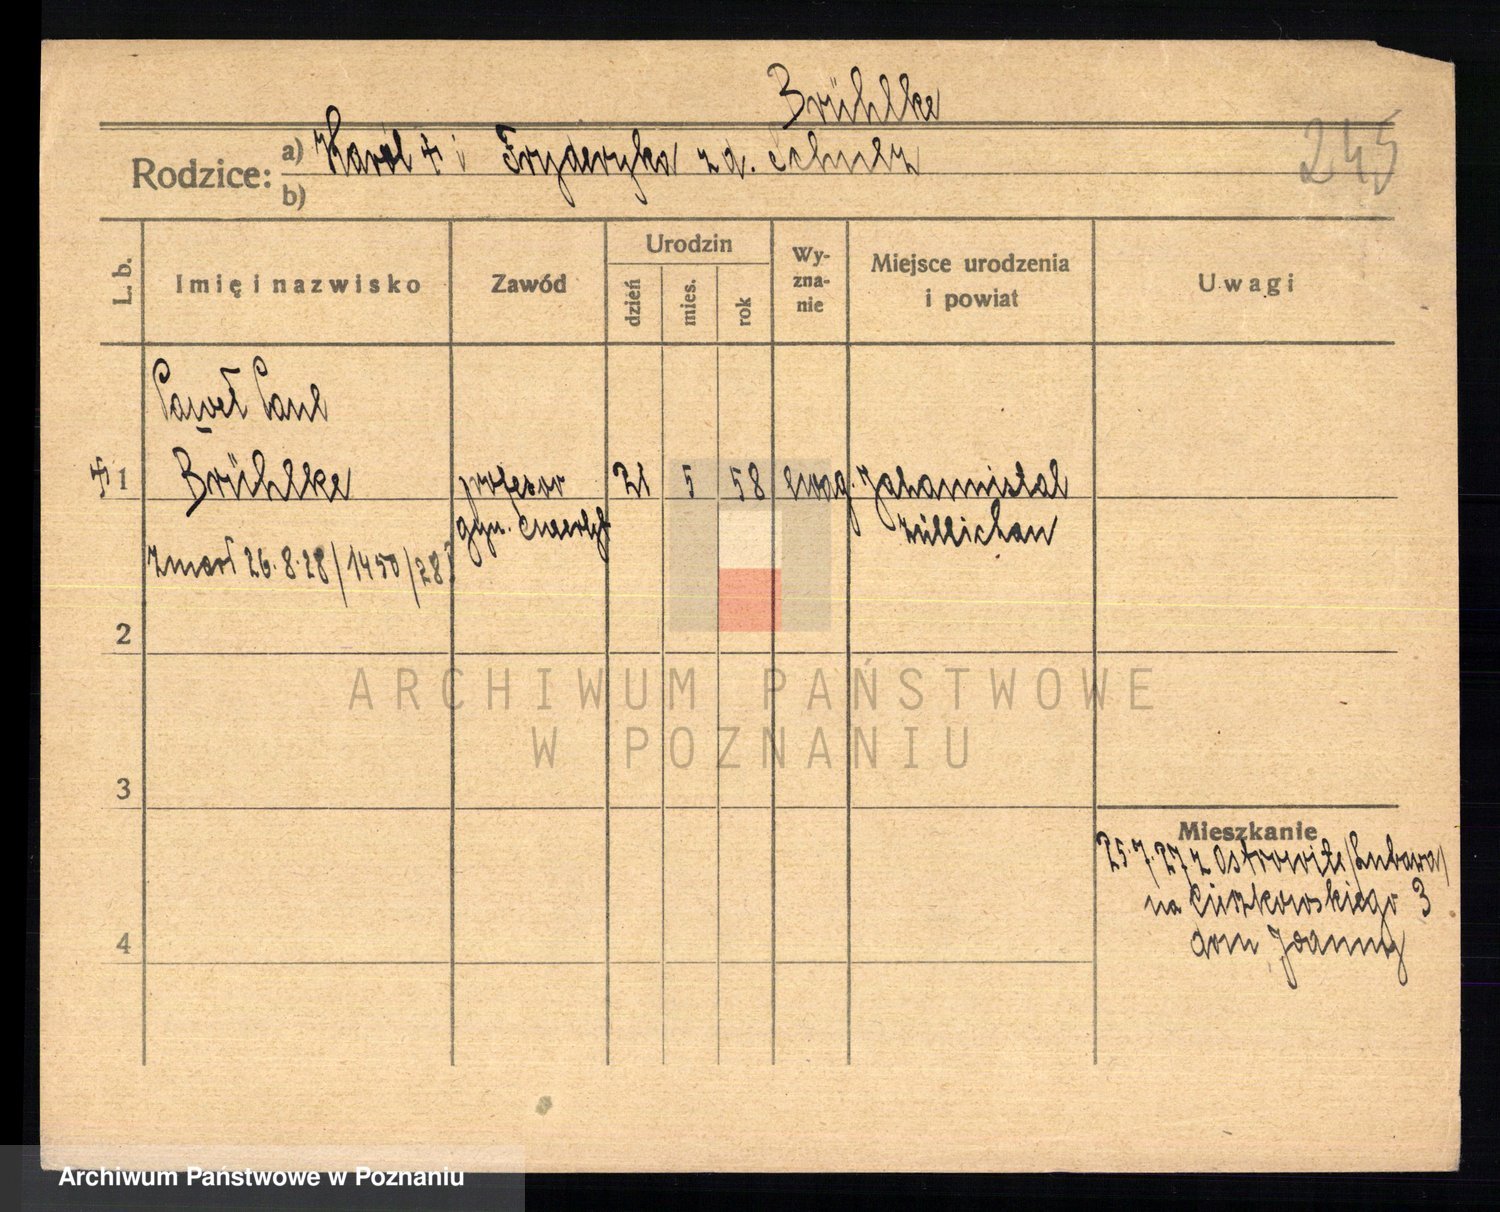 Brühlke
245
Rodzice:
a) Karol + i Fryderyka z d. Schulz
b)
L. b.
Imię i nazwisko
Zawód
Urodzin
dzień
mies.
rok
Wy-
zna-
nie
Miejsce urodzenia
i powiat
Uwagi
Paweł Paul
+ 1 Brühlke profesor 21 5 58 ewag. Johannistal
gym. emeryt Züllichau
zmarł 26.8.28/1450/28
2
ARCHIWUM PAŃSTWOWE
W POZNANIU
3
Mieszkanie
25.7.27 z Ostrowite/Lubawa/
na Cieszkowskiego 3
dom Joanny
4
Archiwum Państwowe w Poznaniu